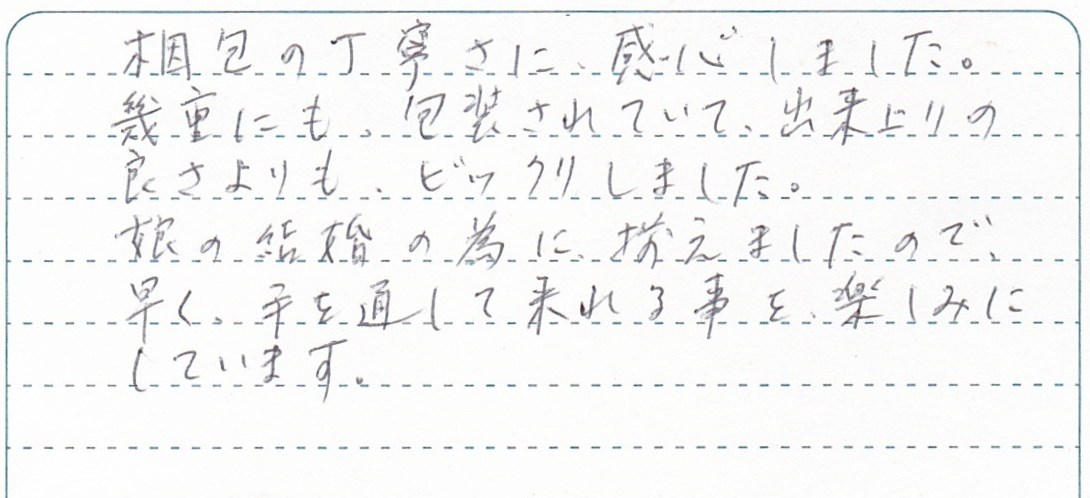 梱包の丁寧さに、感心しました。
幾重にも、包装されていて、出来上りの
良さよりも、ビックリしました。
娘の結婚の為に、揃えましたので、
早く、手を通して来れる事を、楽しみに
しています。